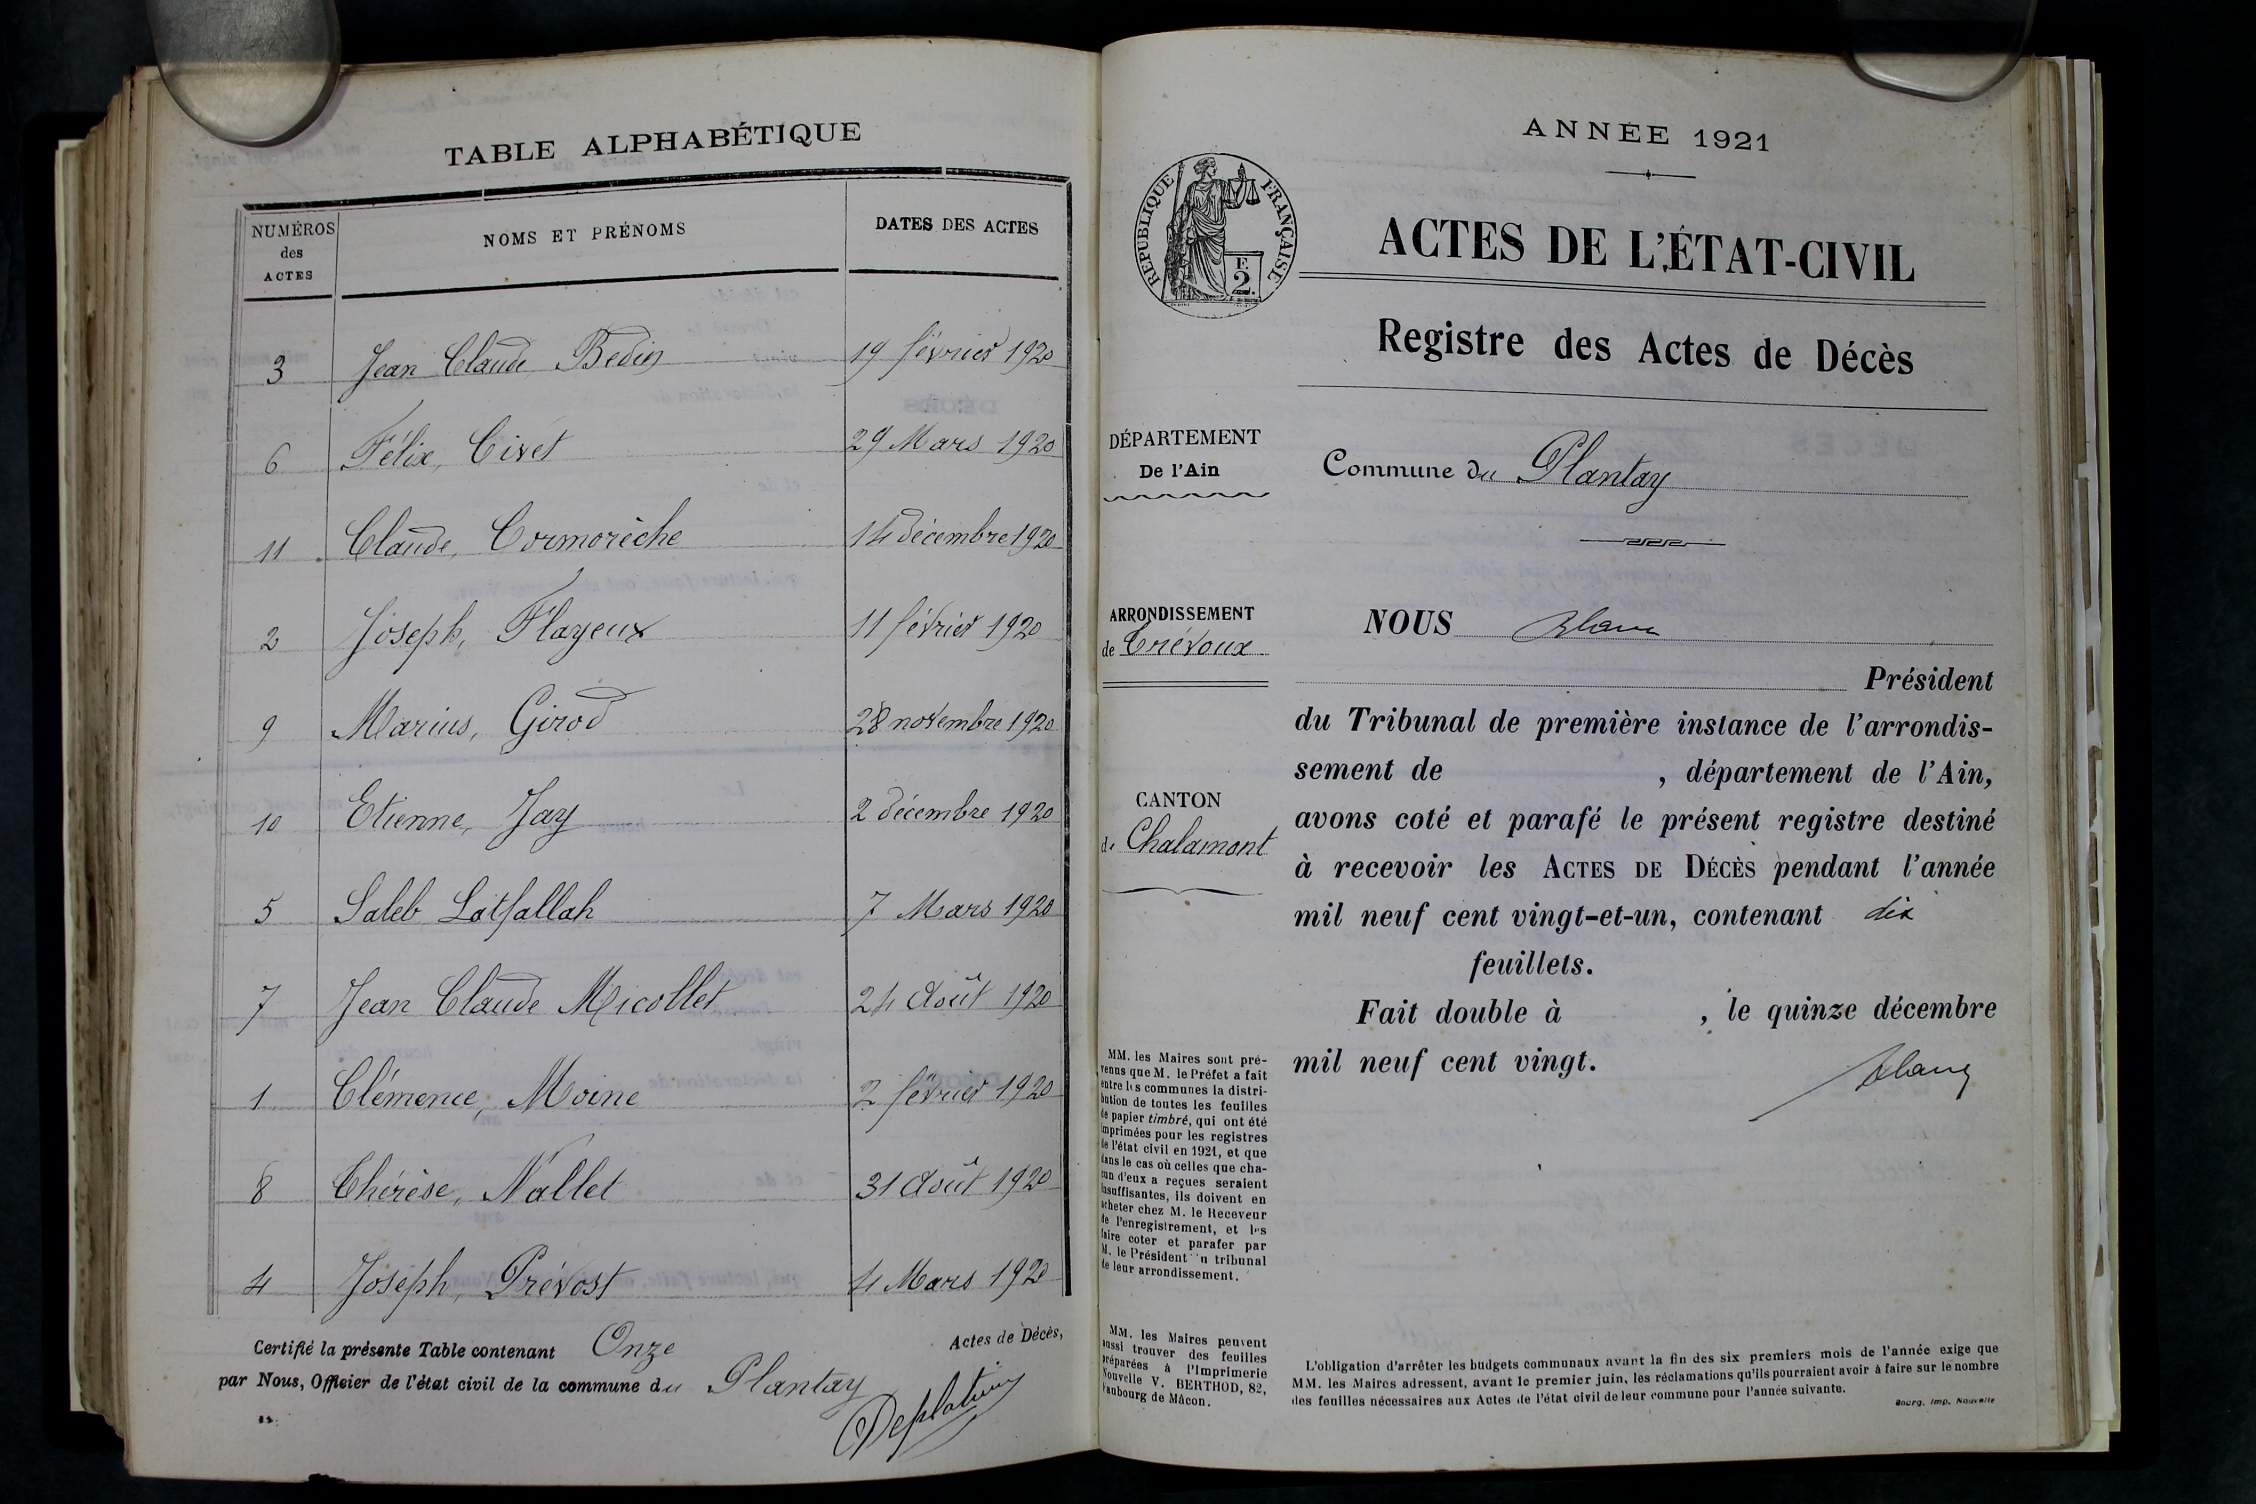 TABLE ALPHABÉTIQUE
NUMÉROS
des
ACTES
NOMS ET PRÉNOMS
DATES DES ACTES
3 Jean Claude Bedin 19 février 1920
6 Félix, Civet 29 Mars 1920
11 Claude, Cormorèche 14 décembre 1920
2 Joseph, Flayeux 11 février 1920
9 Marius, Girod 28 novembre 1920
10 Etienne, Jay 2 décembre 1920
5 Saleb Latfallah 7 Mars 1920
7 Jean Claude Micollet 24 Août 1920
1 Clémence, Moine 2 février 1920
8 Thérèse, Nallet 31 Août 1920
4 Joseph, Prévost 4 Mars 1920
Certifié la présente Table contenant Onze Actes de Décès,
par Nous, Officier de l'état civil de la commune du Plantay
ANNÉE 1921
RÉPUBLIQUE FRANÇAISE
E
2.
ACTES DE L'ÉTAT-CIVIL
Registre des Actes de Décès
DÉPARTEMENT
De l'Ain
Commune du Plantay
ARRONDISSEMENT
de Trévoux
CANTON
de Chalamont
NOUS Blanc
Président
du Tribunal de première instance de l'arrondis-
sement de , département de l'Ain,
avons coté et parafé le présent registre destiné
à recevoir les ACTES DE DÉCÈS pendant l'année
mil neuf cent vingt-et-un, contenant dix
feuillets.
Fait double à , le quinze décembre
mil neuf cent vingt.
Blanc
MM. les Maires sont pré-
venus que M. le Préfet a fait
entre les communes la distri-
bution de toutes les feuilles
de papier timbré, qui ont été
imprimées pour les registres
de l'état civil en 1921, et que
dans le cas où celles que cha-
cun d'eux a reçues seraient
insuffisantes, ils doivent en
acheter chez M. le Receveur
de l'enregistrement, et les
faire coter et parafer par
M. le Président du tribunal
de leur arrondissement.
MM. les Maires peuvent
aussi trouver des feuilles
préparées à l'Imprimerie
Nouvelle V. BERTHOD, 82,
Faubourg de Mâcon.
L'obligation d'arrêter les budgets communaux avant la fin des six premiers mois de l'année exige que
MM. les Maires adressent, avant le premier juin, les réclamations qu'ils pourraient avoir à faire sur le nombre
des feuilles nécessaires aux Actes de l'état civil de leur commune pour l'année suivante.
Bourg, Imp. Nouvelle